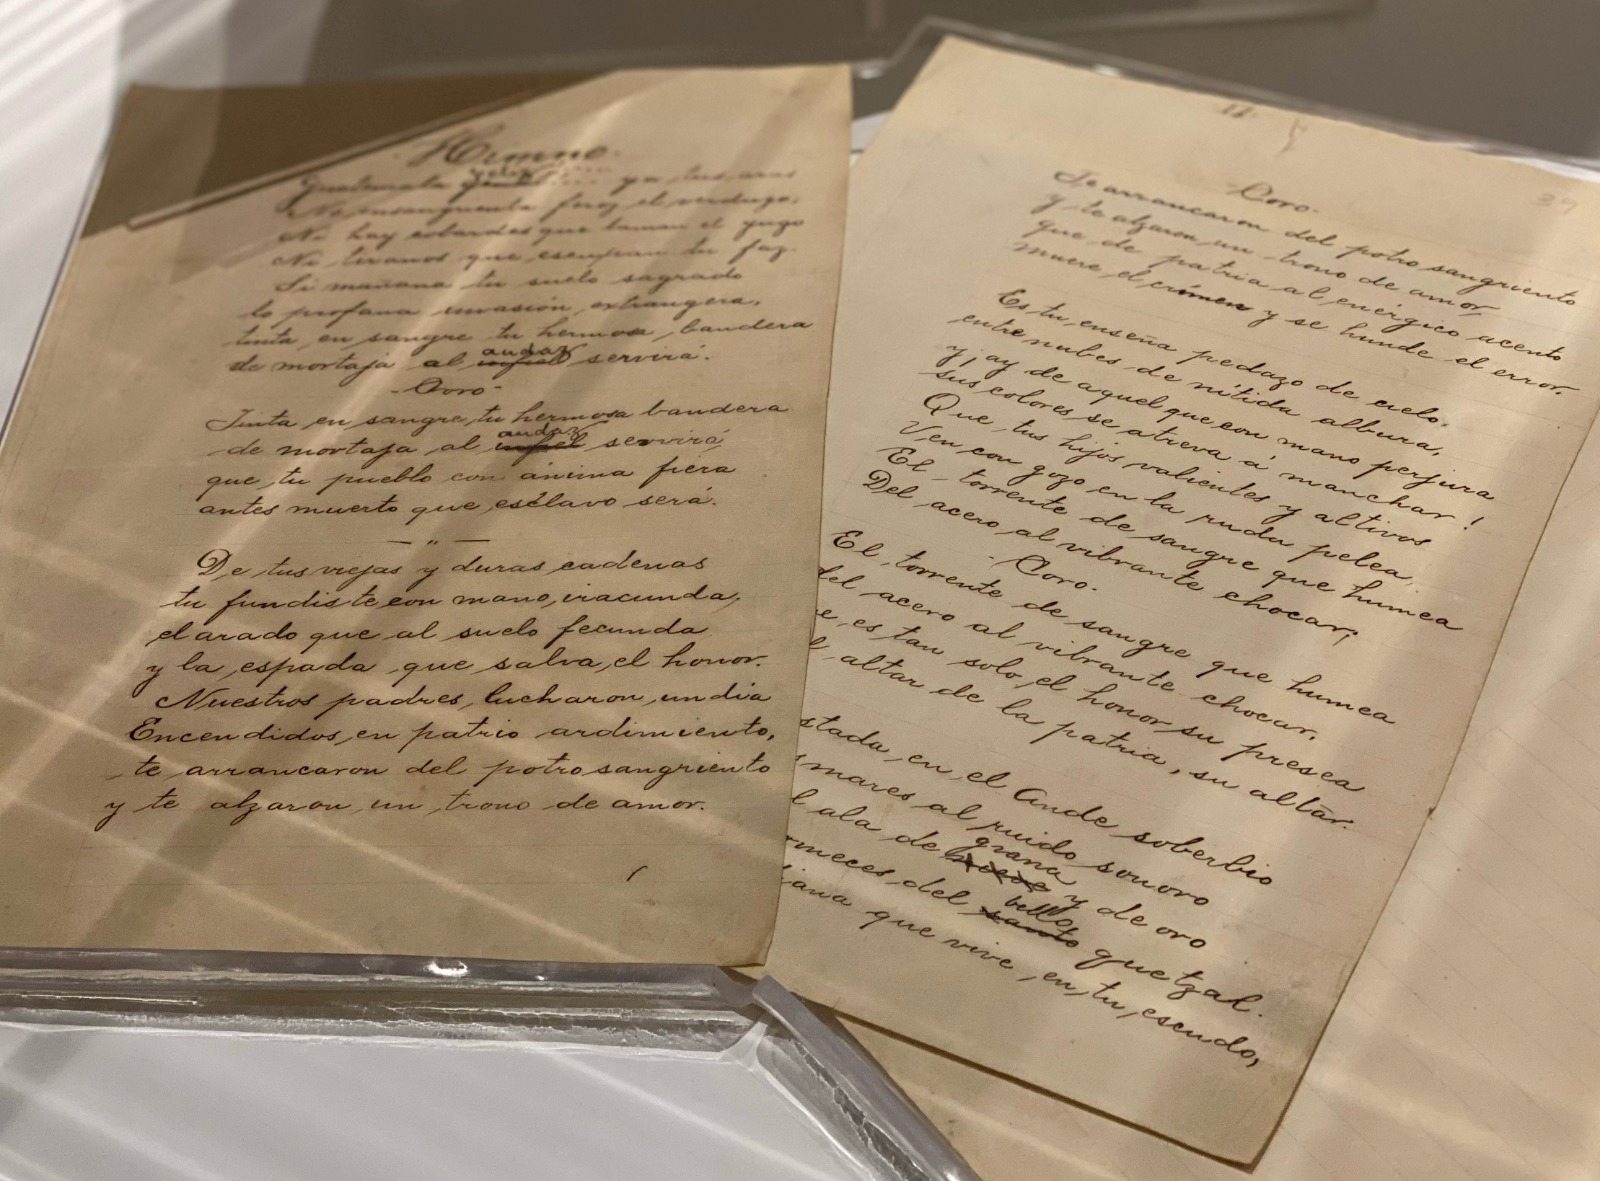 Himno.
feliz
Guatemala ya tus aras
No ensangrienta feroz el verdugo;
Ni hay cobardes que laman el yugo
Ni tiranos que escupan tu faz.
Si mañana tu suelo sagrado
lo profana invasión extrangera,
tinta en sangre tu hermosa bandera
audaz
de mortaja al infiel servirá.
Coro
Tinta en sangre tu hermosa bandera
audaz
de mortaja al infiel servirá;
que tu pueblo con ánima fiera
antes muerto que esclavo será.
— " —
De tus viejas y duras cadenas
tu fundiste con mano iracunda,
el arado que al suelo fecunda
y la espada que salva el honor.
Nuestros padres lucharon un dia
Encendidos en patrio ardimiento,
te arrancaron del potro sangriento
y te alzaron un trono de amor.
39
Coro.
Te arrancaron del potro sangriento
y te alzaron un trono de amor
que de patria al enérgico acento
muere el crímen y se hunde el error.
Es tu enseña pedazo de cielo
entre nubes de nítida albura,
y ¡ay de aquel que con mano perjura
sus colores se atreva á manchar!
Que tus hijos valientes y altivos
Ven con gozo en la ruda pelea
El torrente de sangre que humea
Del acero al vibrante chocar;
Coro.
El torrente de sangre que humea
del acero al vibrante chocar,
e es tan solo el honor su presea
l altar de la patria, su altar.
stada en el Ande soberbio
s mares al ruido sonoro
grana
l ala de y de oro
bello
rmeces del santo quetzal.
iana que vive en tu escudo,